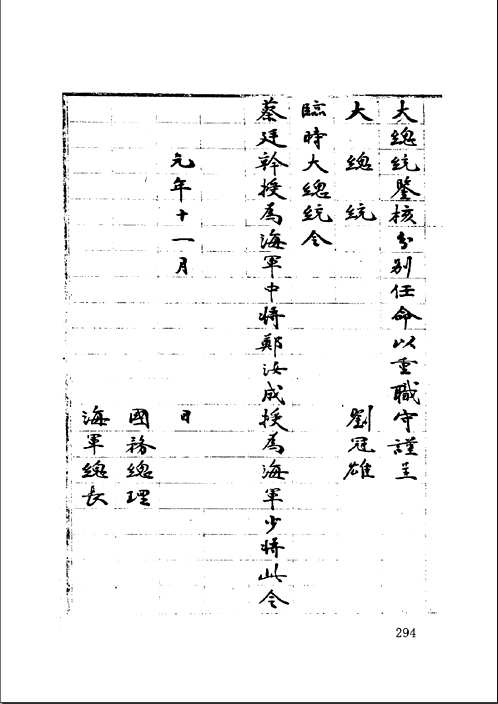 大總統鑒核分別任命以重職守謹呈
大總統　劉冠雄
臨時大總統令
蔡廷幹授爲海軍中將鄭汝成授爲海軍少將此令
元年十一月　日
國務總理
海軍總長
294